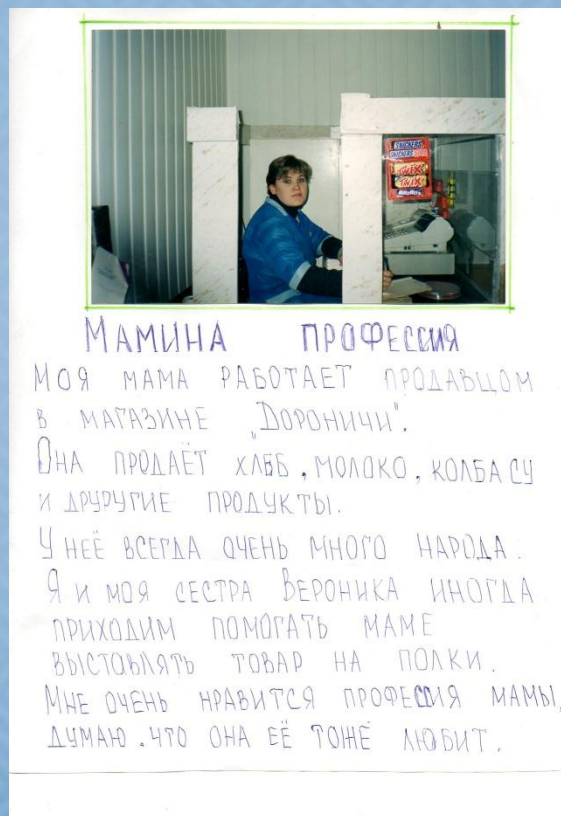 SNICKERS
SNICKERS
TWIX
TWIX
МАМИНА ПРОФЕССИЯ
МОЯ МАМА РАБОТАЕТ ПРОДАВЦОМ
В МАГАЗИНЕ „ДОРОНИЧИ".
ОНА ПРОДАЁТ ХЛЕБ, МОЛОКО, КОЛБАСУ
И ДРУРУГИЕ ПРОДУКТЫ.
У НЕЁ ВСЕГДА ОЧЕНЬ МНОГО НАРОДА.
Я И МОЯ СЕСТРА ВЕРОНИКА ИНОГДА
ПРИХОДИМ ПОМОГАТЬ МАМЕ
ВЫСТАВЛЯТЬ ТОВАР НА ПОЛКИ.
МНЕ ОЧЕНЬ НРАВИТСЯ ПРОФЕССИЯ МАМЫ,
ДУМАЮ, ЧТО ОНА ЕЁ ТОЖЕ ЛЮБИТ.